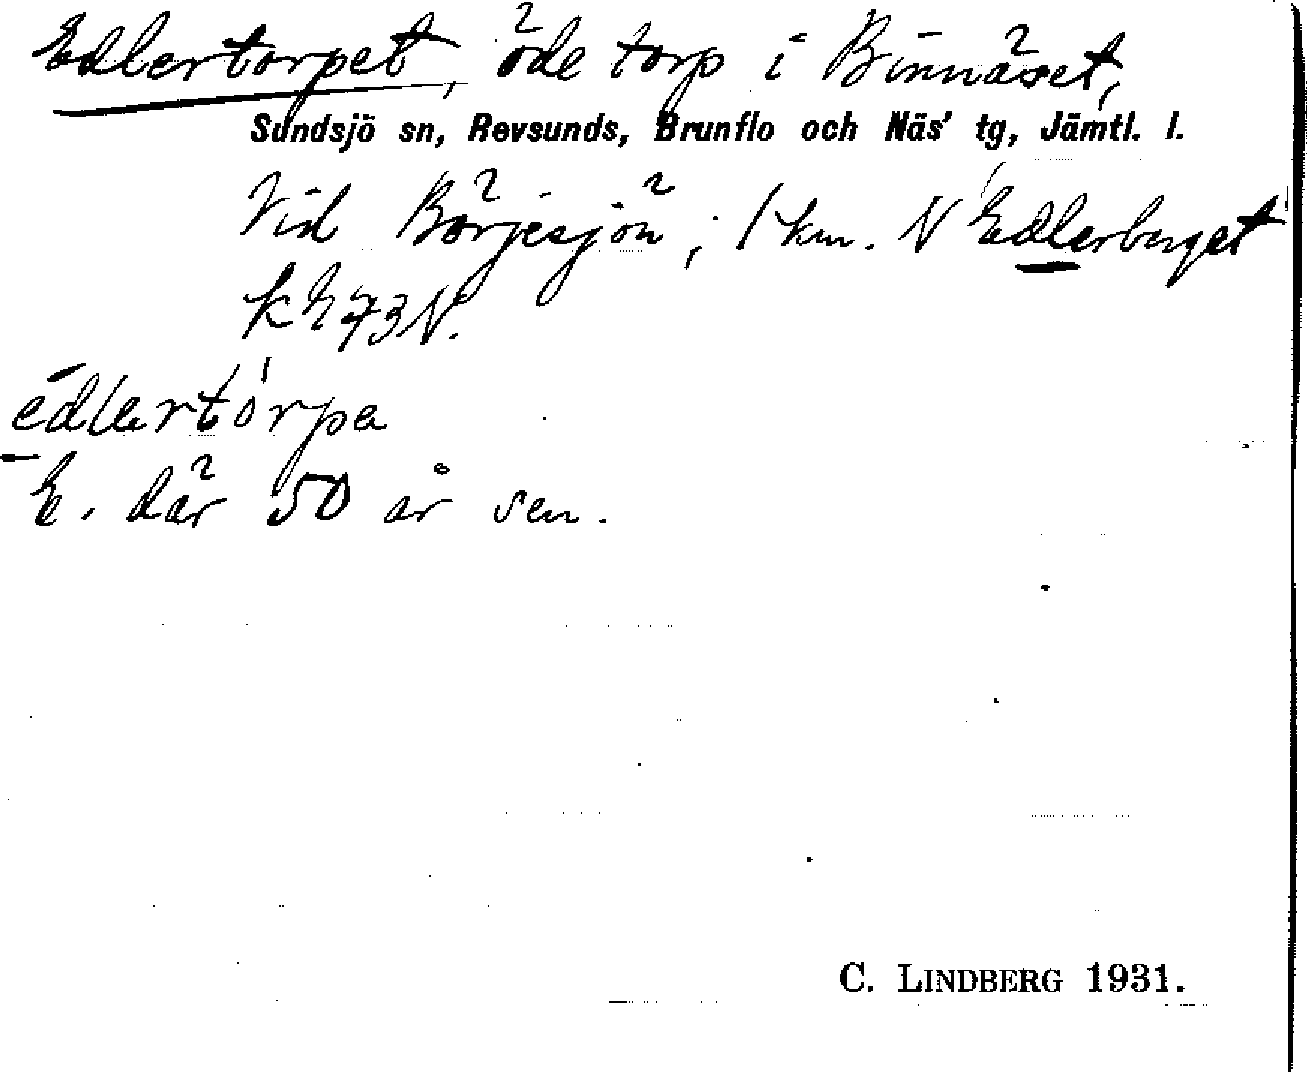 Edlertorpet, öde torp i Binnäset,
Sundsjö sn, Revsunds, Brunflo och Näs' tg, Jämtl. l.
Vid Börjesjön; 1 km. N Edlerberget
k 73 N.
edlertórpa
E. där 50 år sen.
C. LINDBERG 1931.